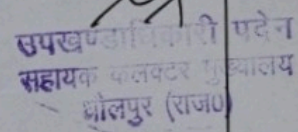 उपखण्डाधिकारी पदेन
सहायक कलक्टर मुख्यालय
धोलपुर (राज0)